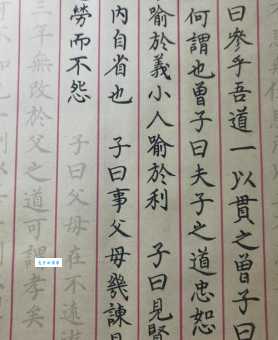 曰參乎吾道一以貫之曾子曰
何謂也曾子曰夫子之道忠恕
喻於義小人喻於利 子曰見賢
內自省也 子曰事父母幾諫見
勞而不怨 子曰父母在不遠遊
三年無改於父之道可謂孝矣